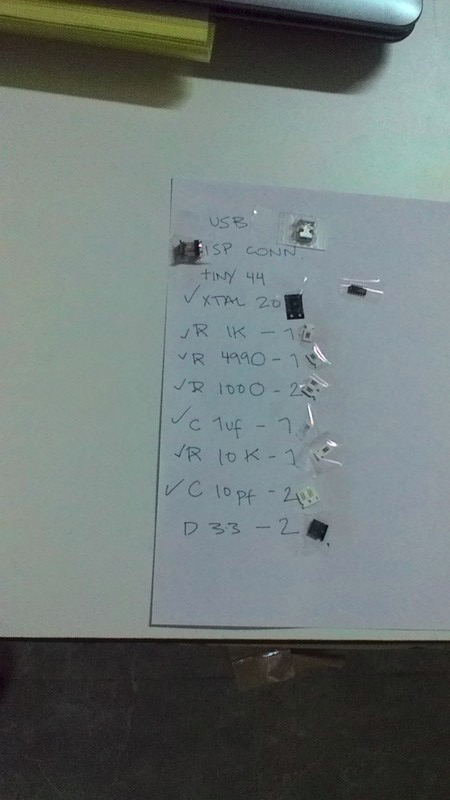 USB
ISP CONN
tINY 44
✓ XTAL 20
✓ R 1K - 1
✓ R 4990 - 1
✓ R 1000 - 2
✓ C 1uf - 1
✓ R 10K - 1
✓ C 10pf - 2
D 33 - 2